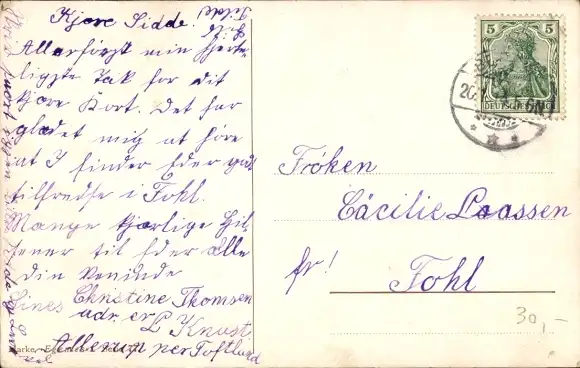 Kjære Sidde.
Allerførst min hjerte-
ligste Tak for dit
kjære Kort. Det har
glædet mig at høre
at I finder Eder godt
tilfredse i Fohl.
Mange kjærlige Hil-
sener til Eder alle
din Veninde
Sines Christine Thomsen
adr. er
L Knust
Allerup per Toftlund
5
DEUTSCHES REICH
20.
Fröken
Cäcilie Laassen
fr!
Fohl
30,-